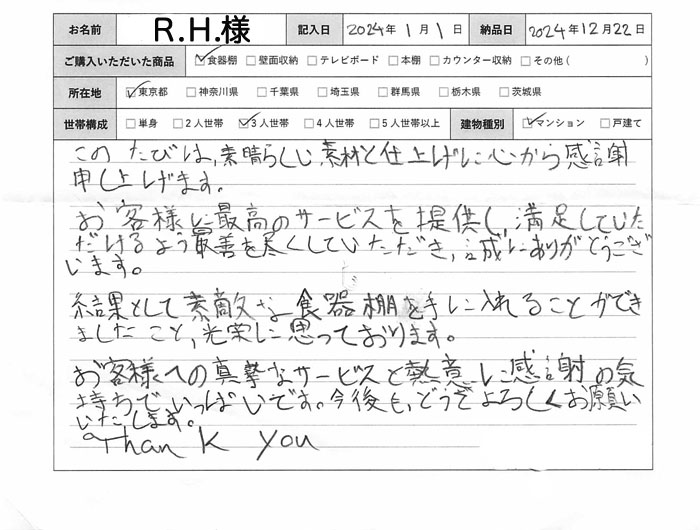 お名前 R.H.様 記入日 2024年1月1日 納品日 2024年12月22日
ご購入いただいた商品 ☑食器棚 □壁面収納 □テレビボード □本棚 □カウンター収納 □その他( )
所在地 ☑東京都 □神奈川県 □千葉県 □埼玉県 □群馬県 □栃木県 □茨城県
世帯構成 □単身 □2人世帯 ☑3人世帯 □4人世帯 □5人世帯以上 建物種別 ☑マンション □戸建て
このたびは、素晴らしい素材と仕上げに心から感謝
申し上げます。
お客様に最高のサービスを提供し、満足していた
だけるよう最善を尽くしていただき、誠にありがとうござ
います。
結果として素敵な食器棚を手に入れることができ
ましたこと、光栄に思っております。
お客様への真摯なサービスと熱意に感謝の気
持ちでいっぱいです。今後も、どうぞよろしくお願い
いたします。
Thank you